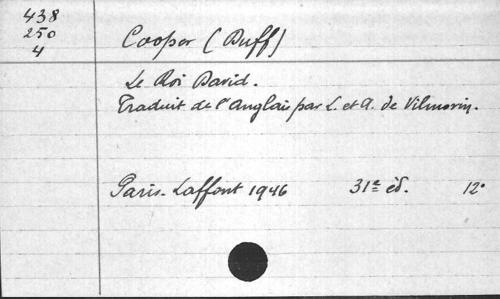 438
250
4
Cooper (Duff)
Le Roi David.
Traduit de l'Anglais par L. et A. de Vilmorin.
Paris. Laffont 1946 31e éd. 12°